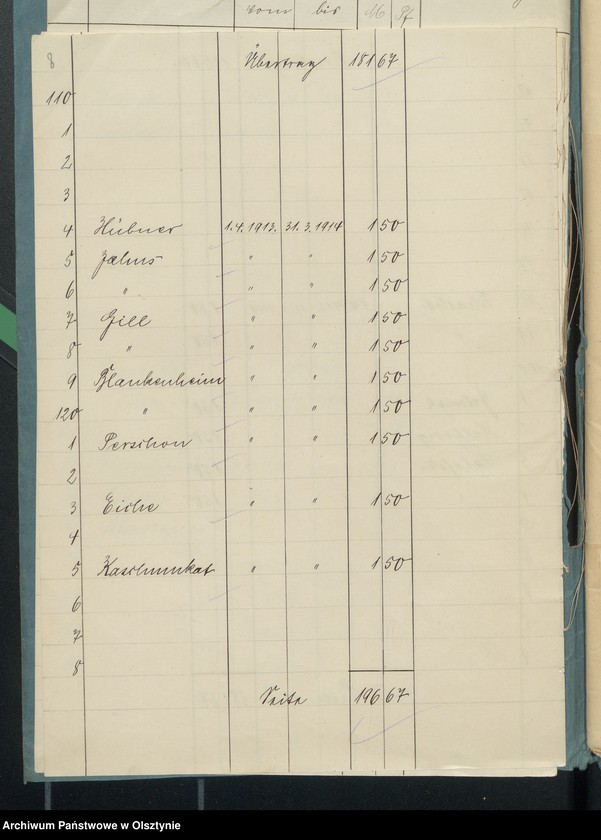 vom bis M Pf
8 Übertrag 181 67
110
1
2
3
4 Hübner 1.4.1913. 31.3.1914 1 50
5 Jahns " " 1 50
6 " " " 1 50
7 Gill " " 1 50
8 " " " 1 50
9 Blankenheim " " 1 50
120 " " " 1 50
1 Perschon " " 1 50
2
3 Eiche " " 1 50
4
5 Kaschmukat " " 1 50
6
7
8
Seite 196 67
Archiwum Państwowe w Olsztynie